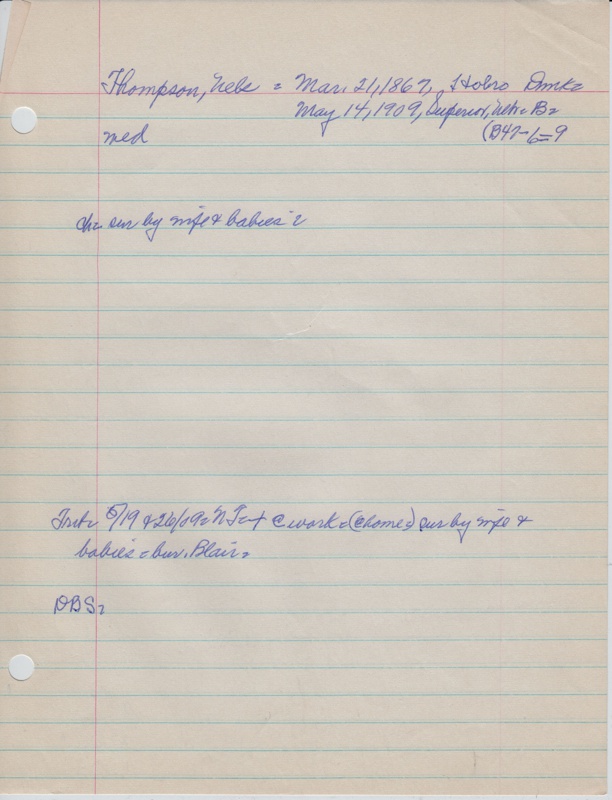 Thompson, Nels = Mar. 21, 1867, Hobro Dmk=
May 14, 1909, Superior, Neb= B=
med (B47-6=9
ch= sur by wife & babies =
Trib= 5/19 & 26/09= N T=+ @ work=(@home=) sur by wife &
babies = bur. Blair=
DBS=